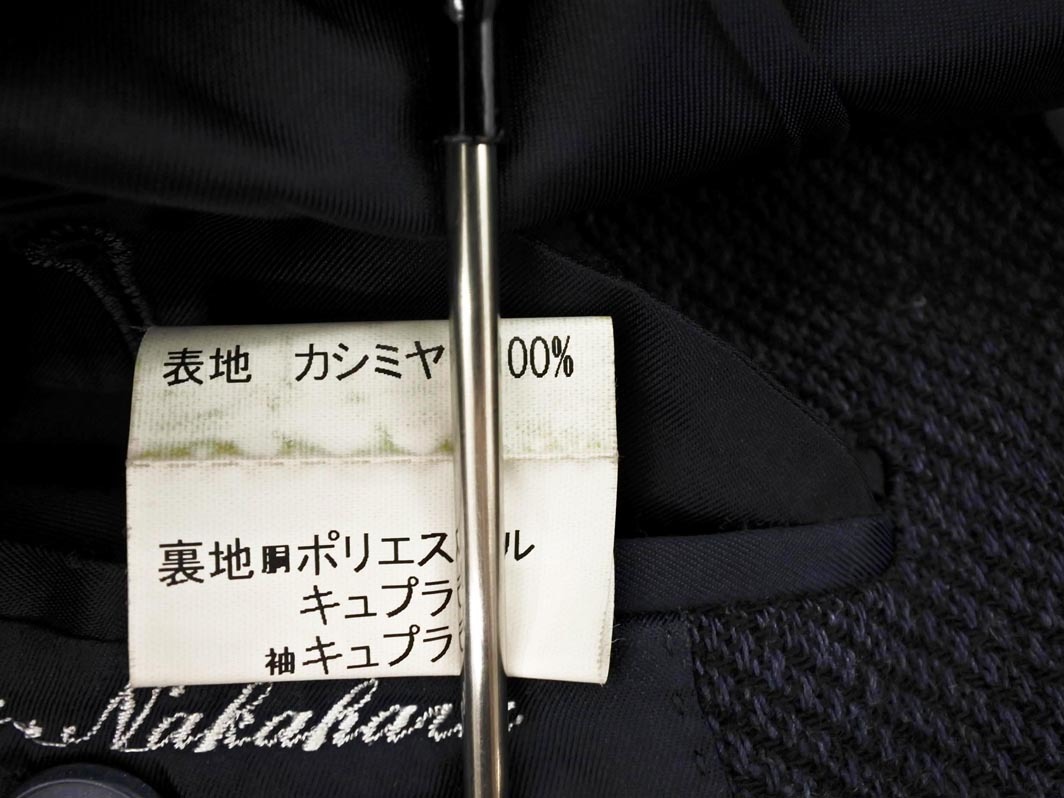 表地 カシミヤ 00%
裏地胴ポリエス ル
キュプラ
袖キュプラ
Nakahara